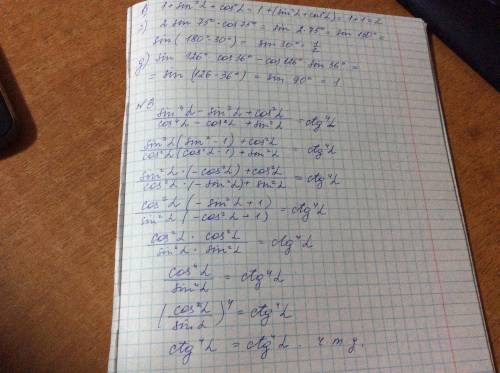 в) 1 + sin²α + cos²α = 1 + (sin²α + cos²α) = 1 + 1 = 2
г) 2 sin 75° · cos 75° = sin 2·75° = sin 150° =
sin (180° - 30°) = sin 30° = 1/2
д) sin 126° cos 36° - cos 126° sin 36° =
= sin (126 - 36°) = sin 90° = 1
№3
(sin⁴α - sin²α + cos²α) / (cos⁴α - cos²α + sin²α) = ctg⁴α
(sin²α (sin² - 1) + cos²α) / (cos²α (cos²α - 1) + sin²α) = ctg⁴α
(sin²α · (-cos²α) + cos²α) / (cos²α · (-sin²α) + sin²α) = ctg⁴α
(cos²α (-sin²α + 1)) / (sin²α (-cos²α + 1)) = ctg⁴α
(cos²α · cos²α) / (sin²α · sin²α) = ctg⁴α
cos⁴α / sin⁴α = ctg⁴α
(cosα / sinα)⁴ = ctg⁴α
ctg⁴α = ctg⁴α. ч т д.